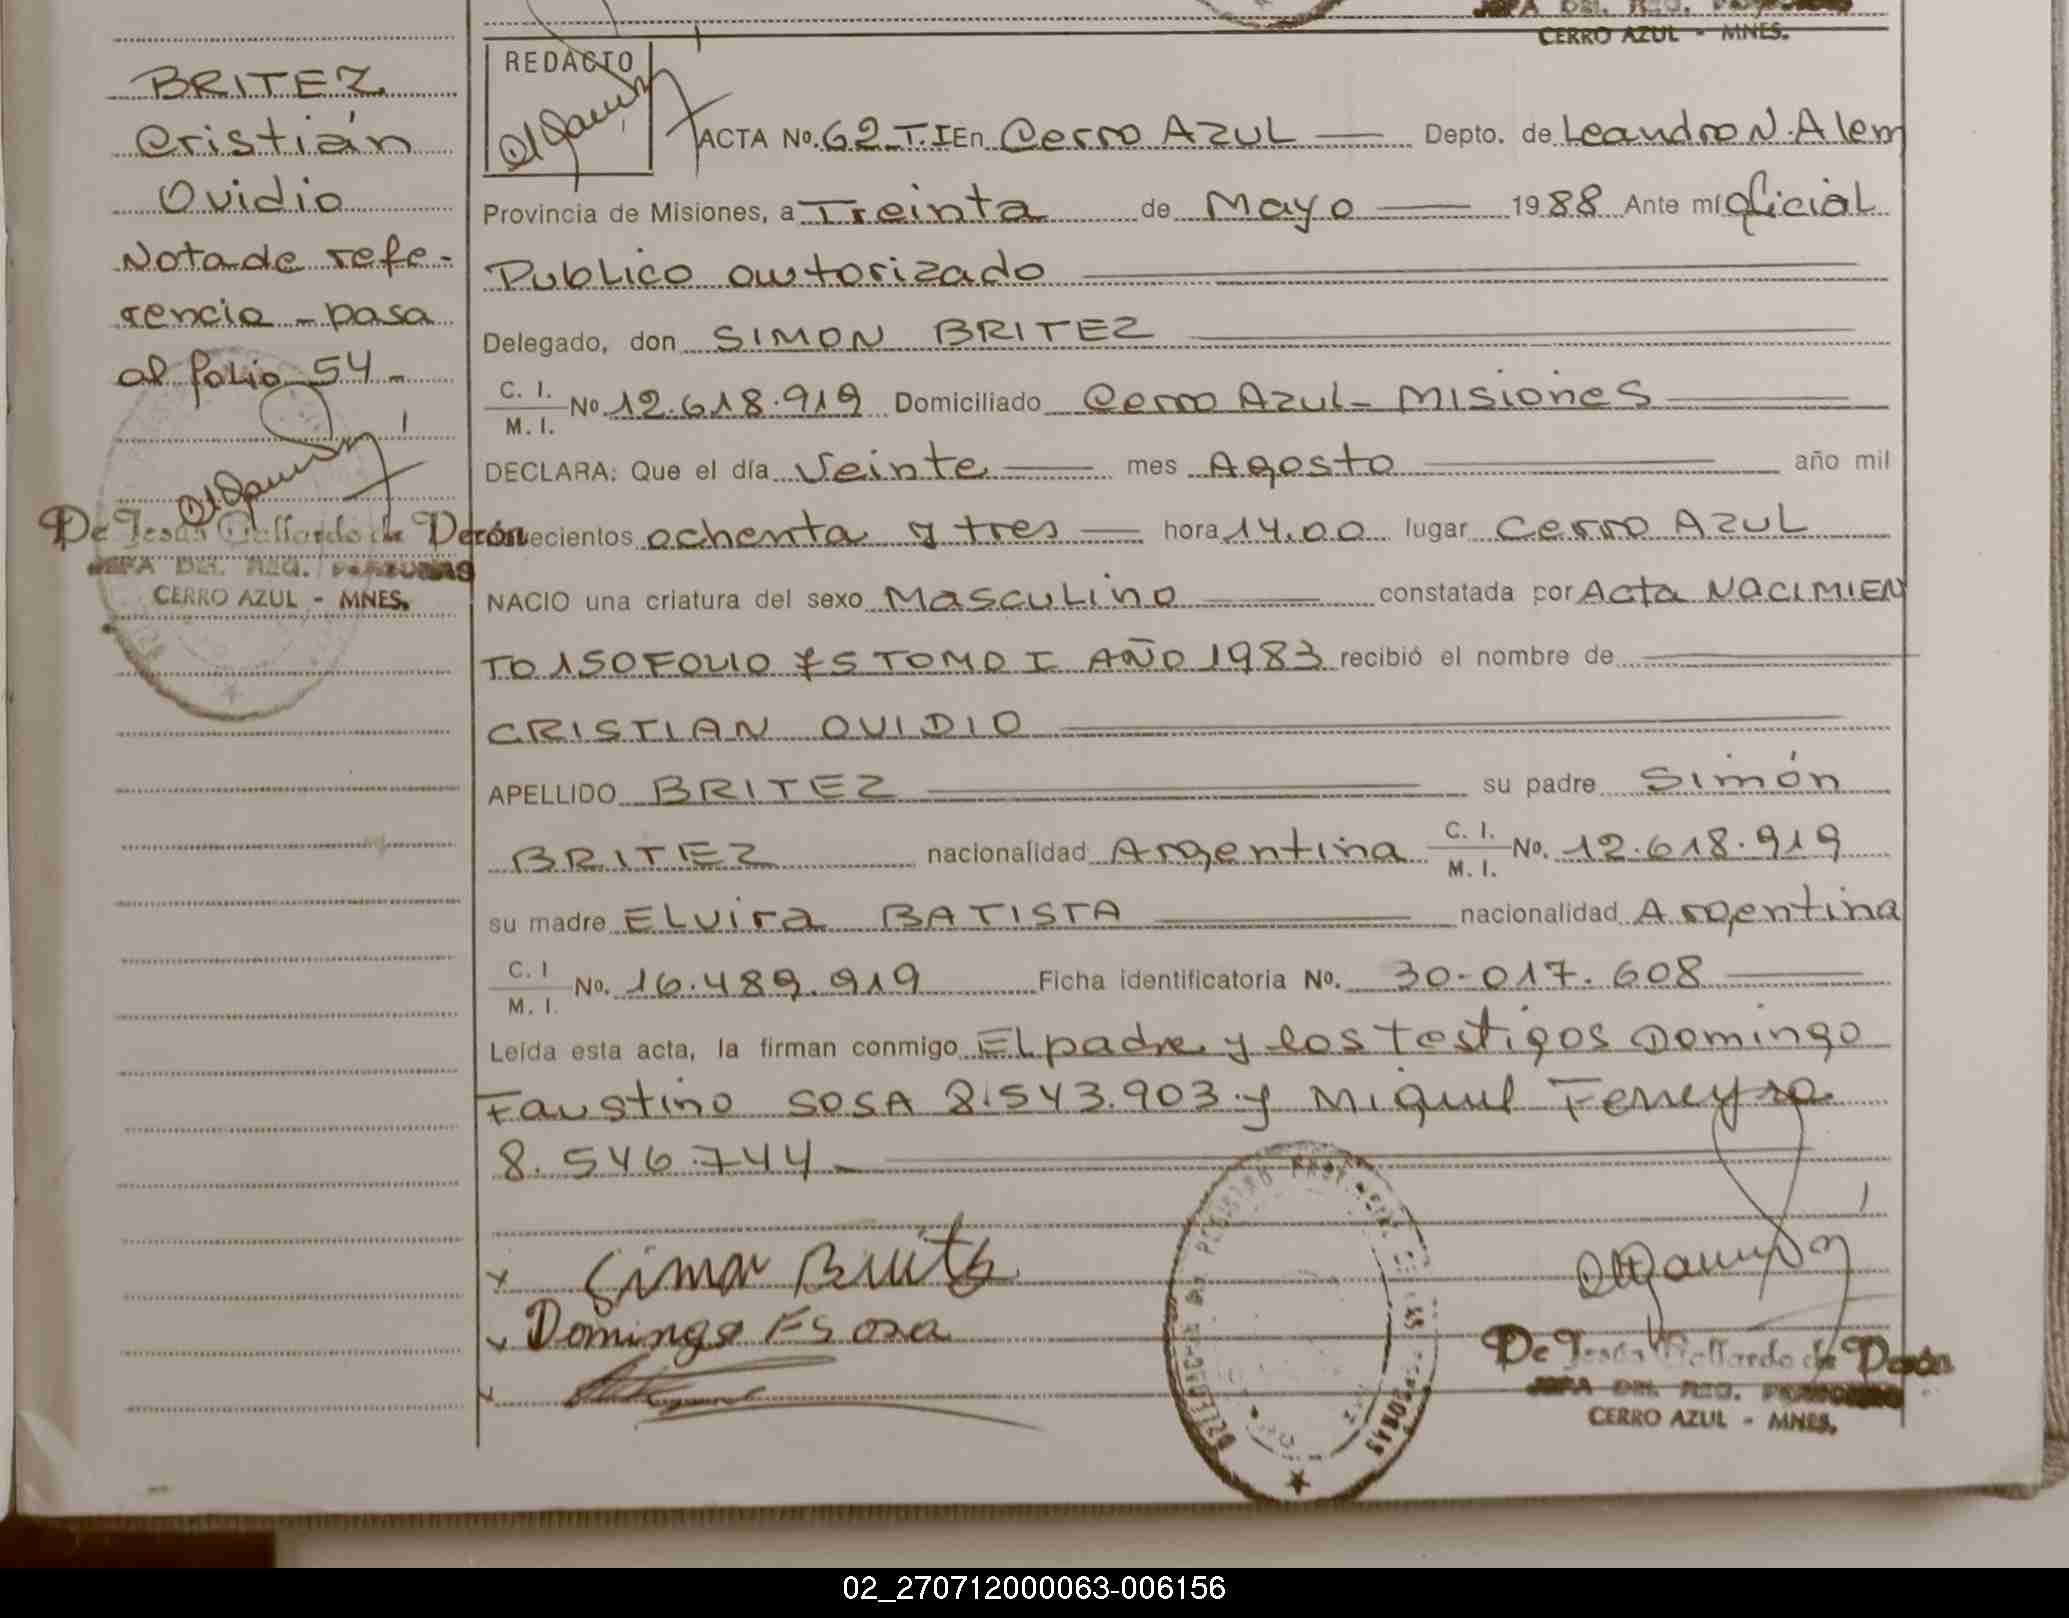 CERRO AZUL - MNES.
BRITEZ
Cristián
Ovidio
Nota de refe-
rencia - pasa
al folio 54 -
De Jesús Gallardo de Perón
JEFA DEL REG.
CERRO AZUL - MNES.
REDACTO
ACTA No. 62-T.I En Cerro AZUL Depto. de Leandro N. Alem
Provincia de Misiones, a Treinta de Mayo 1988 Ante mí oficial
Publico autorizado
Delegado, don SIMON BRITEZ
C. I. M. I. No. 12.618.919 Domiciliado Cerro Azul - Misiones
DECLARA: Que el día Veinte mes Agosto año mil
novecientos ochenta y tres hora 14,00 lugar Cerro AZUL
NACIO una criatura del sexo Masculino constatada por Acta NACIMIEN
TO 150 FOLIO 75 TOMO I AÑO 1983 recibió el nombre de
CRISTIAN OVIDIO
APELLIDO BRITEZ su padre Simón
BRITEZ nacionalidad Argentina C. I. M. I. No. 12.618.919
su madre Elvira BATISTA nacionalidad Argentina
C. I M. I. No. 16.489.919 Ficha identificatoria No. 30-017.608
Leída esta acta, la firman conmigo El padre y los testigos Domingo
Faustino SOSA 8.543.903 y Miguel Ferreyra
8.546.744
Simon Britez
Domingo F Sosa
De Jesús Gallardo de Perón
JEFA DEL REG.
CERRO AZUL - MNES.
02_270712000063-006156